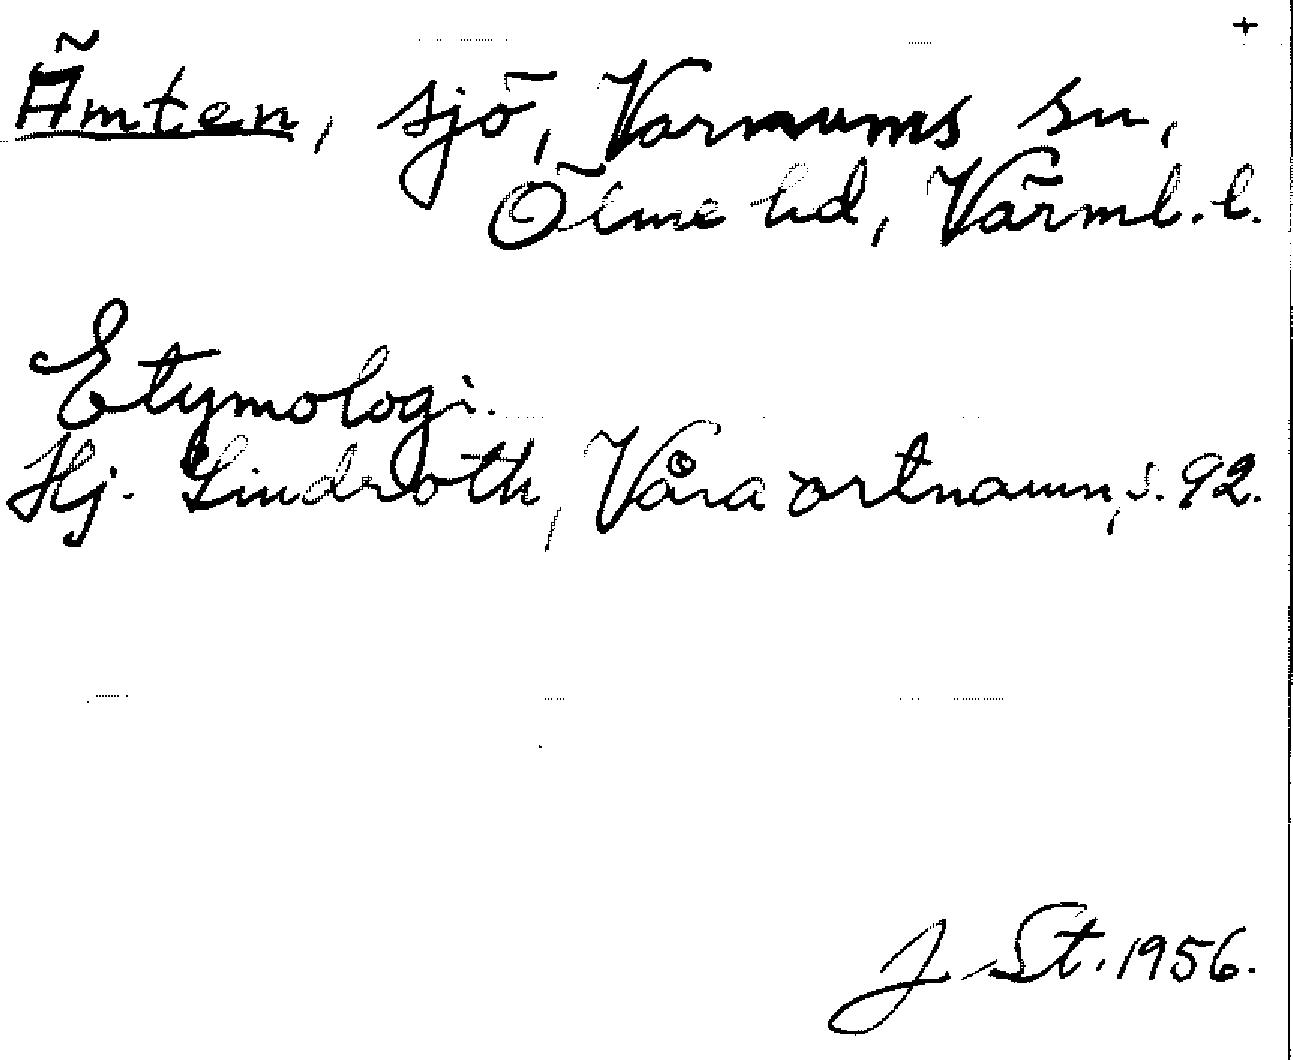 +
Ämten, sjö, Varnums sn,
Ölme hd, Värml. l.
Etymologi.
Hj. Lindroth, Våra ortnamn, s. 92.
J. St. 1956.